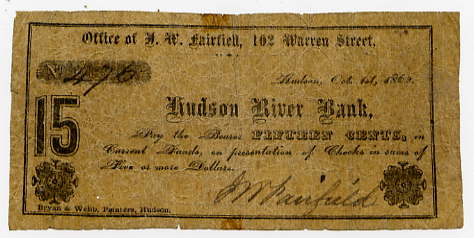 Office of J. W. Fairfield, 102 Warren Street.
No. 476
Hudson, Oct. 1st, 1862.
15
Hudson River Bank,
Pay the Bearer FIFTEEN CENTS, in
Current Funds, on presentation of Checks in sums of
Five or more Dollars.
J W Fairfield
Bryan & Webb, Printers, Hudson.